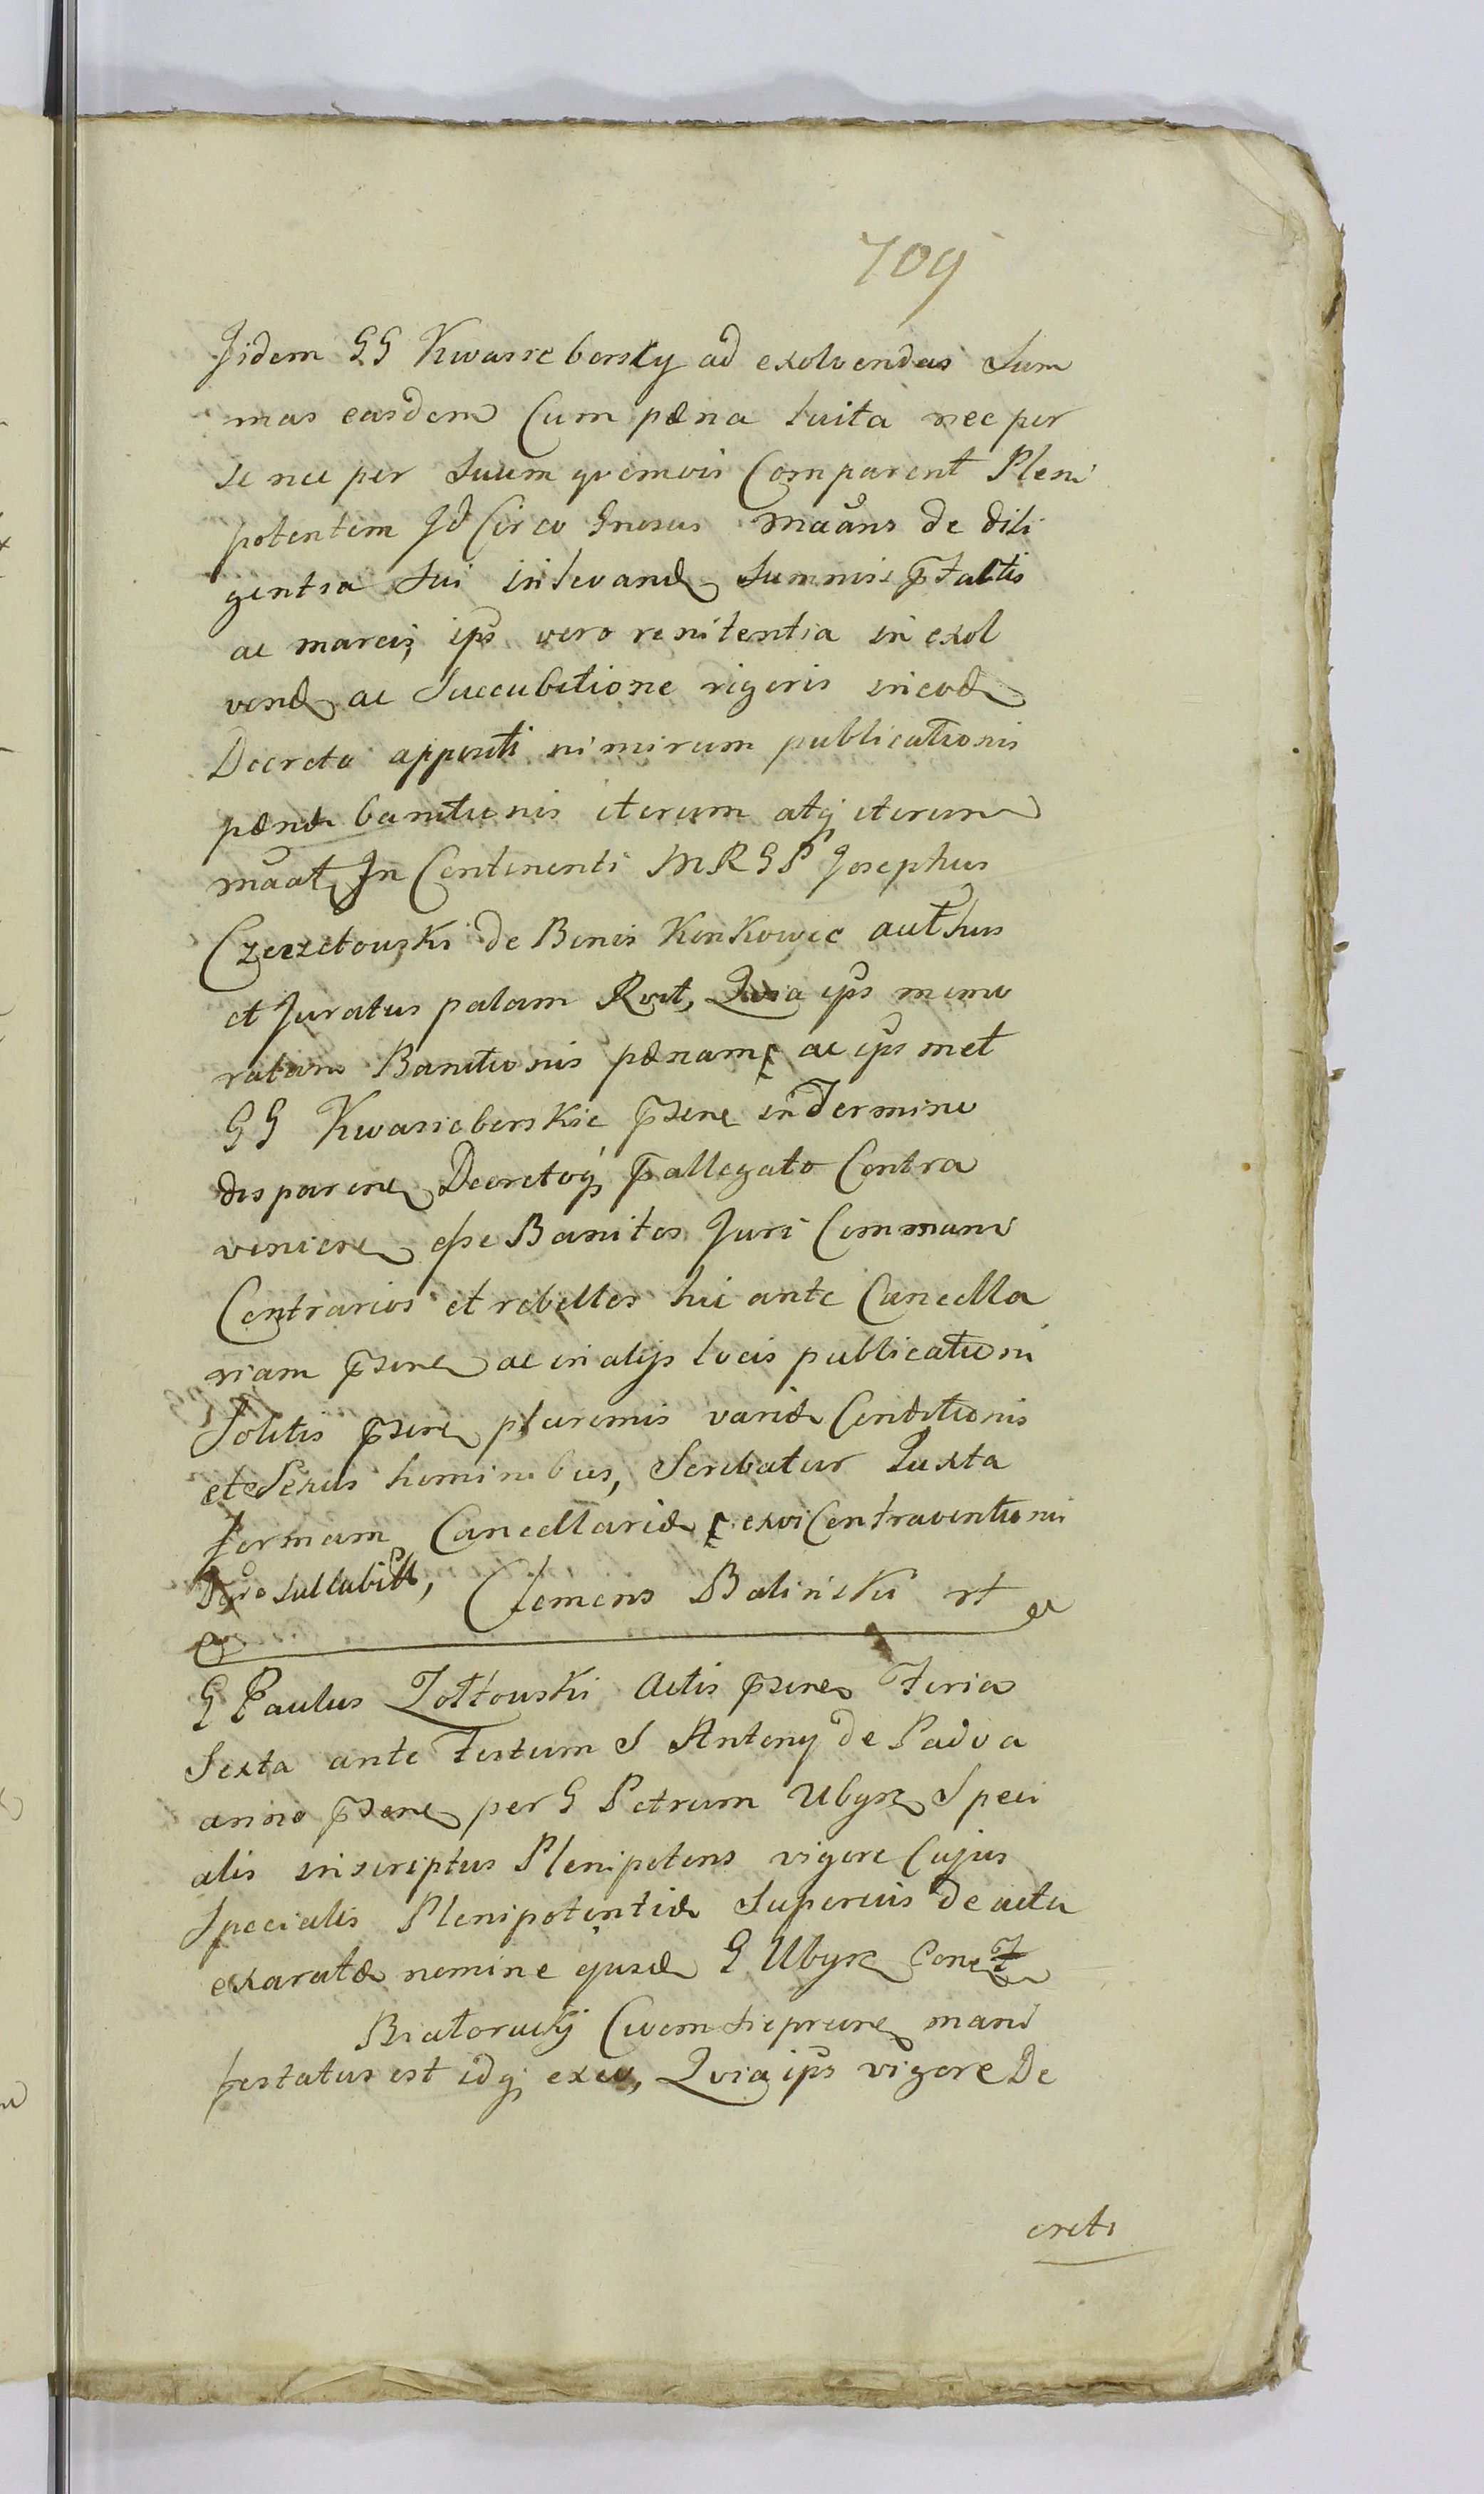 709
Jidem GG Kwasieborscy ad exolvendas Sum
mas easdem Cum pæna luita nec per
se nec per Suum quemvis Comparent Pleni
potentem Id Circo Gnosus maāns de dili
gentia Sui in levand Summis pfactis
ac marcis, ips vero renitentia in exol
vend ac Succubitione rigoris in eod
Decreto appositi nimirum publicationis
pænæ banitionis iterum atq iterum
māat, In Continenti MRGP Josephus
Czerzetowski de Bonis Konkowic authus
et Juratus palam Rvit, Quia ips memo
ratam Banitionis pænam ac ips met
GG Kwasieborskie psene in Termino
disparene Decretoq pallegato Contra
veniene esse Banitos Juri Communi
Contrarios et rebelles hic ante Cancella
riam psene ac in alijs locis publicationi
Solitis psene plurimis variæ Conditionis
et Sexus hominibus, Scribatur Juxta
formam Cancellariæ ex vi Contraventionis
Clemens Baliński rt
G Paulus Zołtowski Actis psene Feria
Sexta ante Festum S Antony de Padva
anno psene per G Petrum Ubysz Speci
alis inscriptus Plenipotens vigore Cujus
Specialis Plenipotentiæ Superius de actu
exaratæ nomine ejusd G Ubysz Cone
Białorucky Civem mani
festatus est idq exeo, Quia ips vigore De
creti